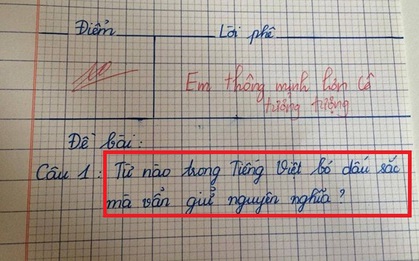 Điểm
Lời phê
10
Em thông minh hơn cô
tưởng tượng
Đề bài:
Câu 1: Từ nào trong Tiếng Việt bỏ dấu sắc
mà vẫn giữ nguyên nghĩa?